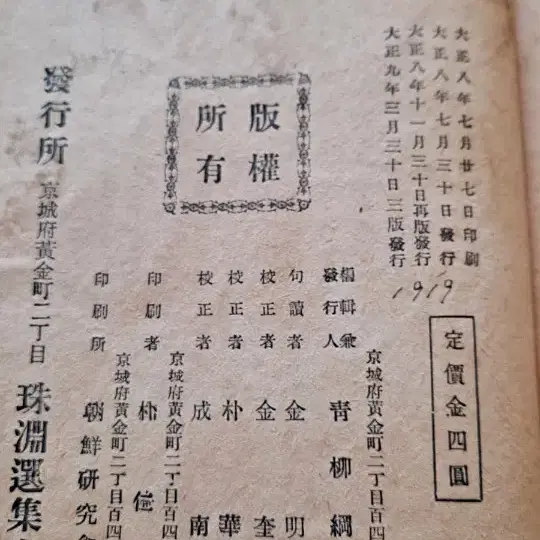 大正八年七月廿七日印刷
大正八年七月三十日發行
大正八年十一月三十日再版發行
大正九年三月三十日三版發行
1919
定價金四圓
版權
所有
京城府黃金町二丁目百四
編輯兼
發行人 靑柳綱
句讀者 金明
校正者 金奎
校正者 朴華
校正者 成南
京城府黃金町二丁目百四
印刷者 朴
京城府黃金町二丁目百四
印刷所 朝鮮研究
發行所 京城府黃金町二丁目 珠淵選集